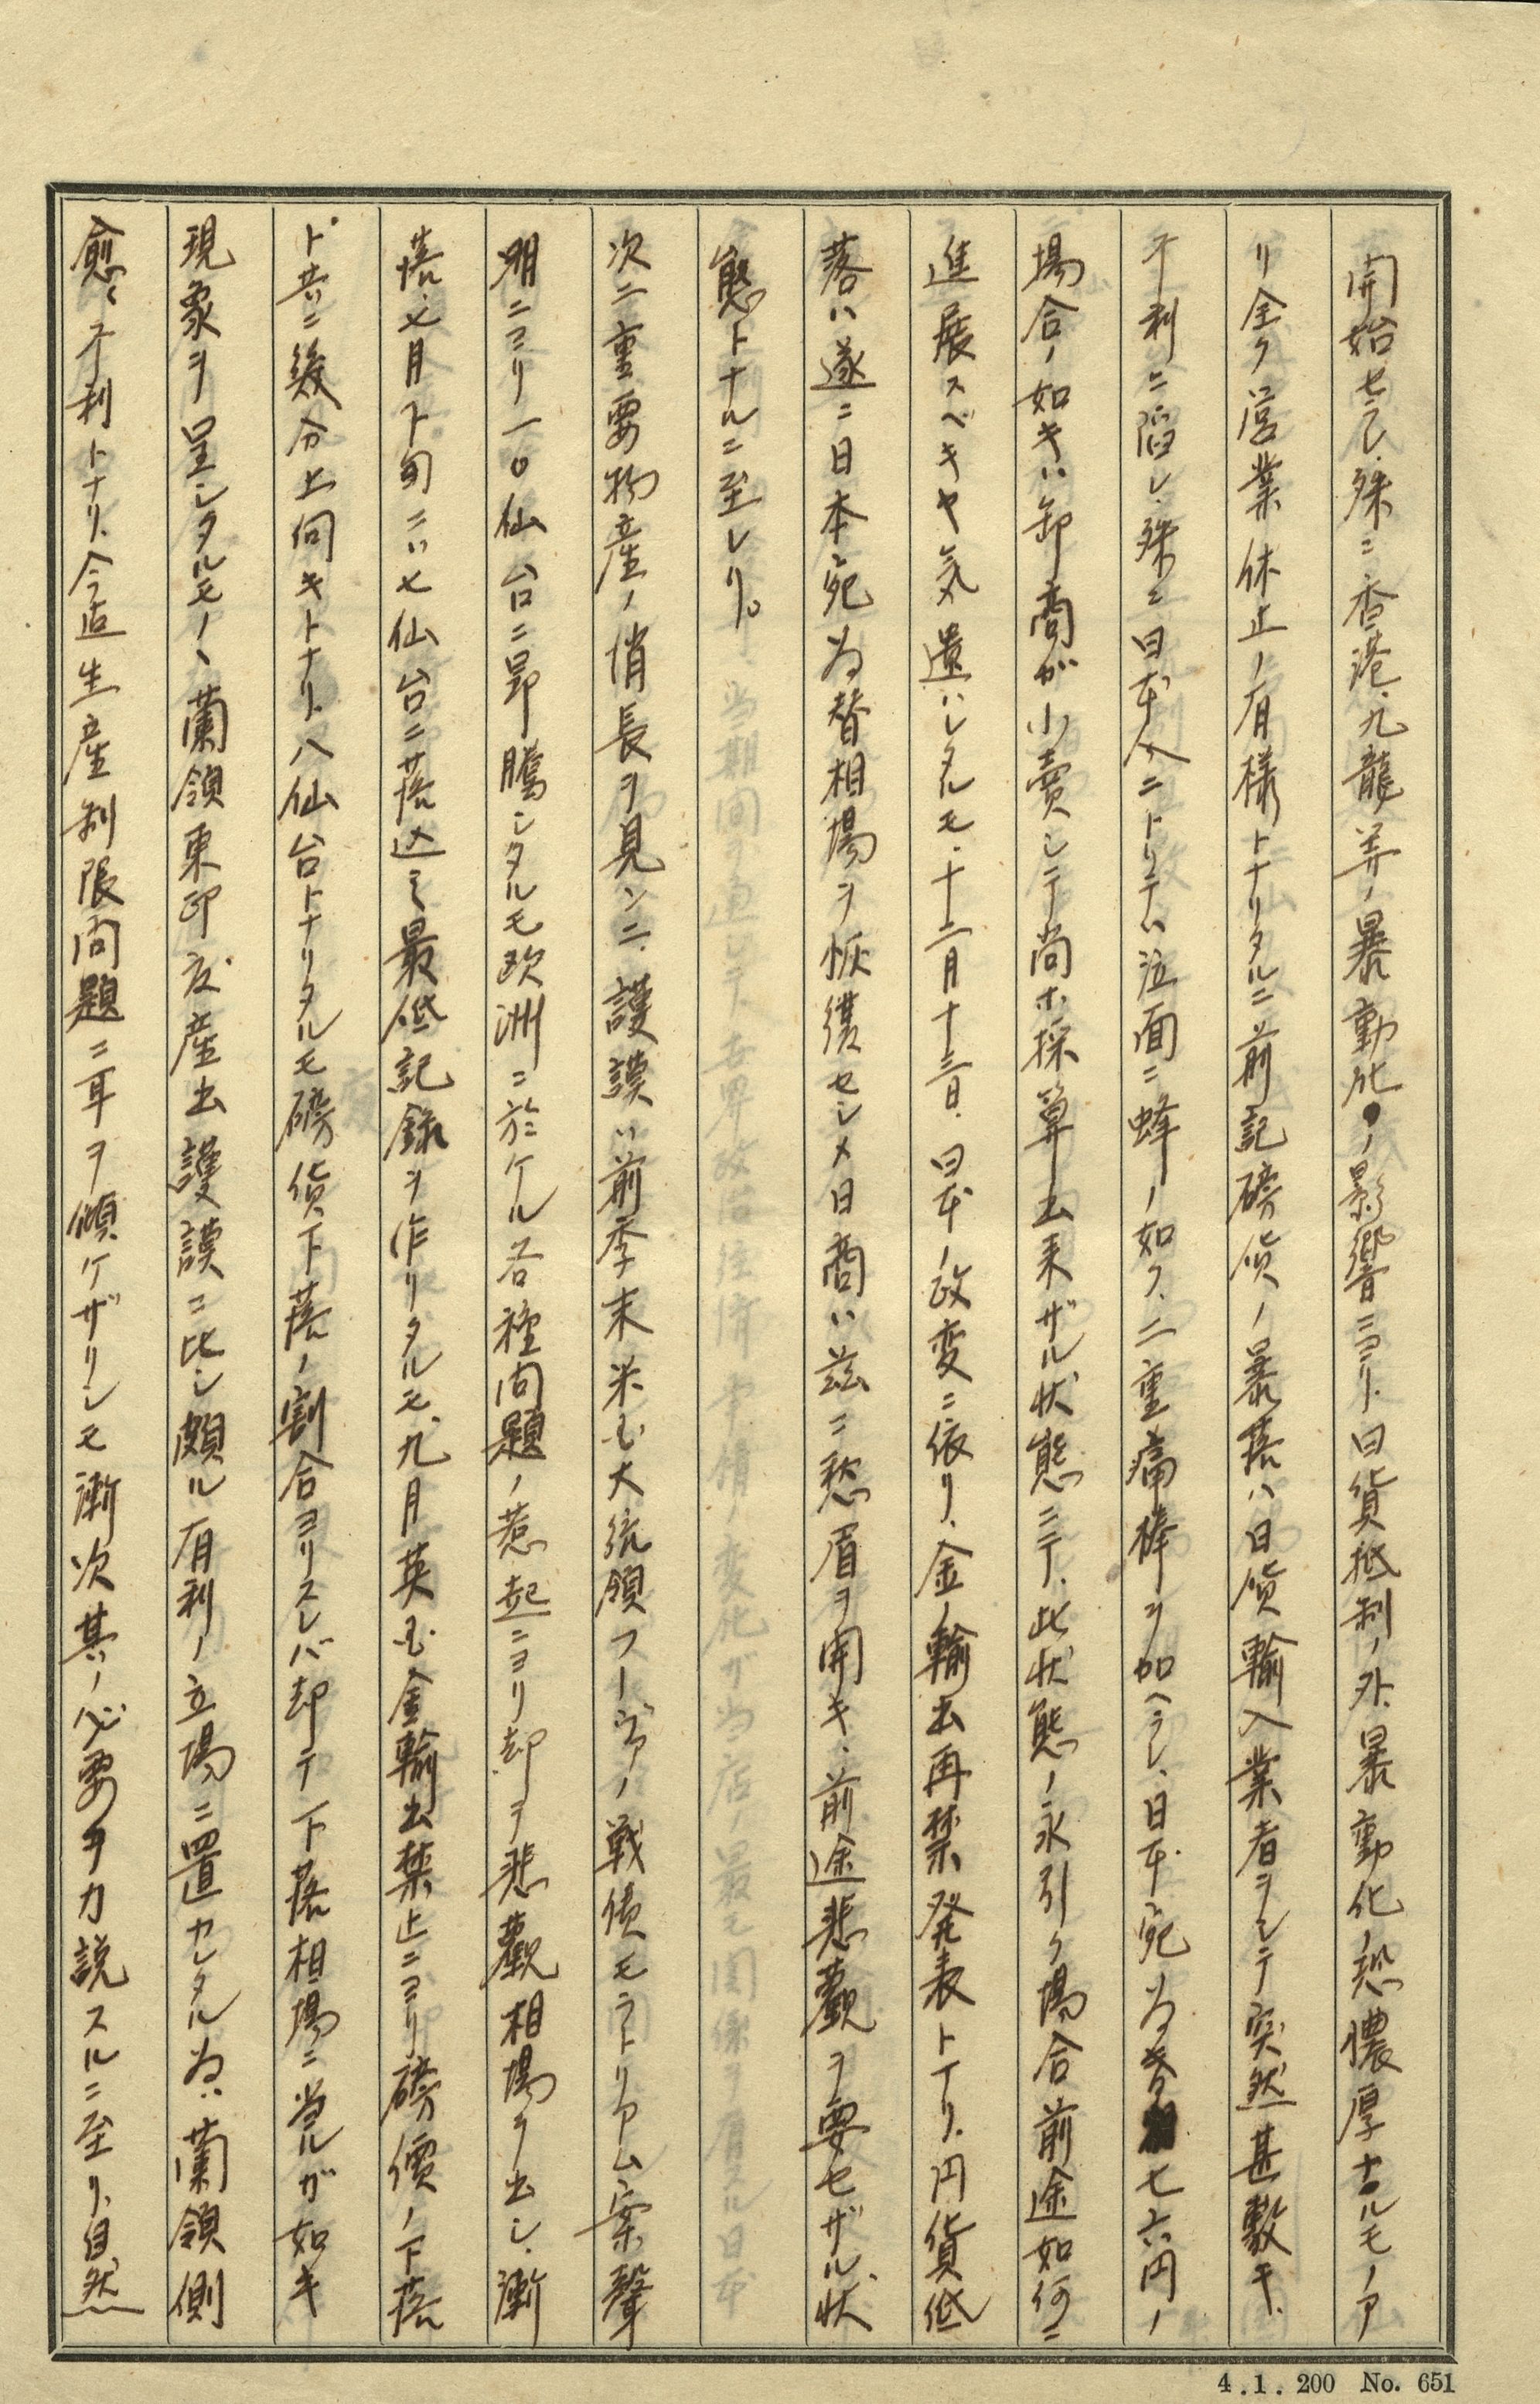 開始セラレ、殊ニ香港、九龍弄ノ暴動化ノ影響ニヨリ、日貨抵制ノ外、暴動化ノ恐濃厚ナルモノア
リ全ク営業休止ノ有様トナリタルニ前記磅貨ノ暴落ハ日貨輸入業者ヲシテ突然甚敷キ
不利ニ陥レ、殊ニ日本人ニトリテハ泣面ニ蜂ノ如ク、二重痛棒ヲ加ヘラレ、日本宛為替七六円ノ
場合ノ如キハ卸商ガ小賣シテ尚ホ採算出来ザル状態ニテ、此状態ノ永引ク場合前途如何ニ
進展スベキヤ気遣ハレタルモ、十二月十三日、日本ノ政変ニ依リ、金ノ輸出再禁発表トナリ、円貨低
落ハ遂ニ日本宛為替相場ヲ恢復セシメ日商ハ茲ニ愁眉ヲ開キ、前途悲觀ヲ要セザル状
態トナルニ至レリ。
次ニ重要物産ノ消長ヲ見ンニ、護謨ハ前季末米国大統領フーヴァノ戦債モラトリアム案聲
明ニヨリ一〇仙台ニ昂騰シタルモ欧洲ニ於ケル各種問題ノ惹起ニヨリ却ヲ悲觀相場ヲ出シ、漸
落、七月下旬ニハ七仙台ニ落込ミ最低記録ヲ作リタルモ、九月英国金輸出禁止ニヨリ磅價ノ下落
ト共ニ幾分上向キトナリ、八仙台トナリタルモ磅貨下落ノ割合ヨリスレバ却テ下落相場ニ当ルガ如キ
現象ヲ呈シタルモノヽ蘭領東印度産出護謨ニ比シ頗ル有利ノ立場ニ置カレタル為、蘭領側
愈々不利トナリ、今迄生産制限問題ニ耳ヲ傾ケザリシモ漸次其ノ必要ヲ力説スルニ至リ、自然
4.1.200 No. 651